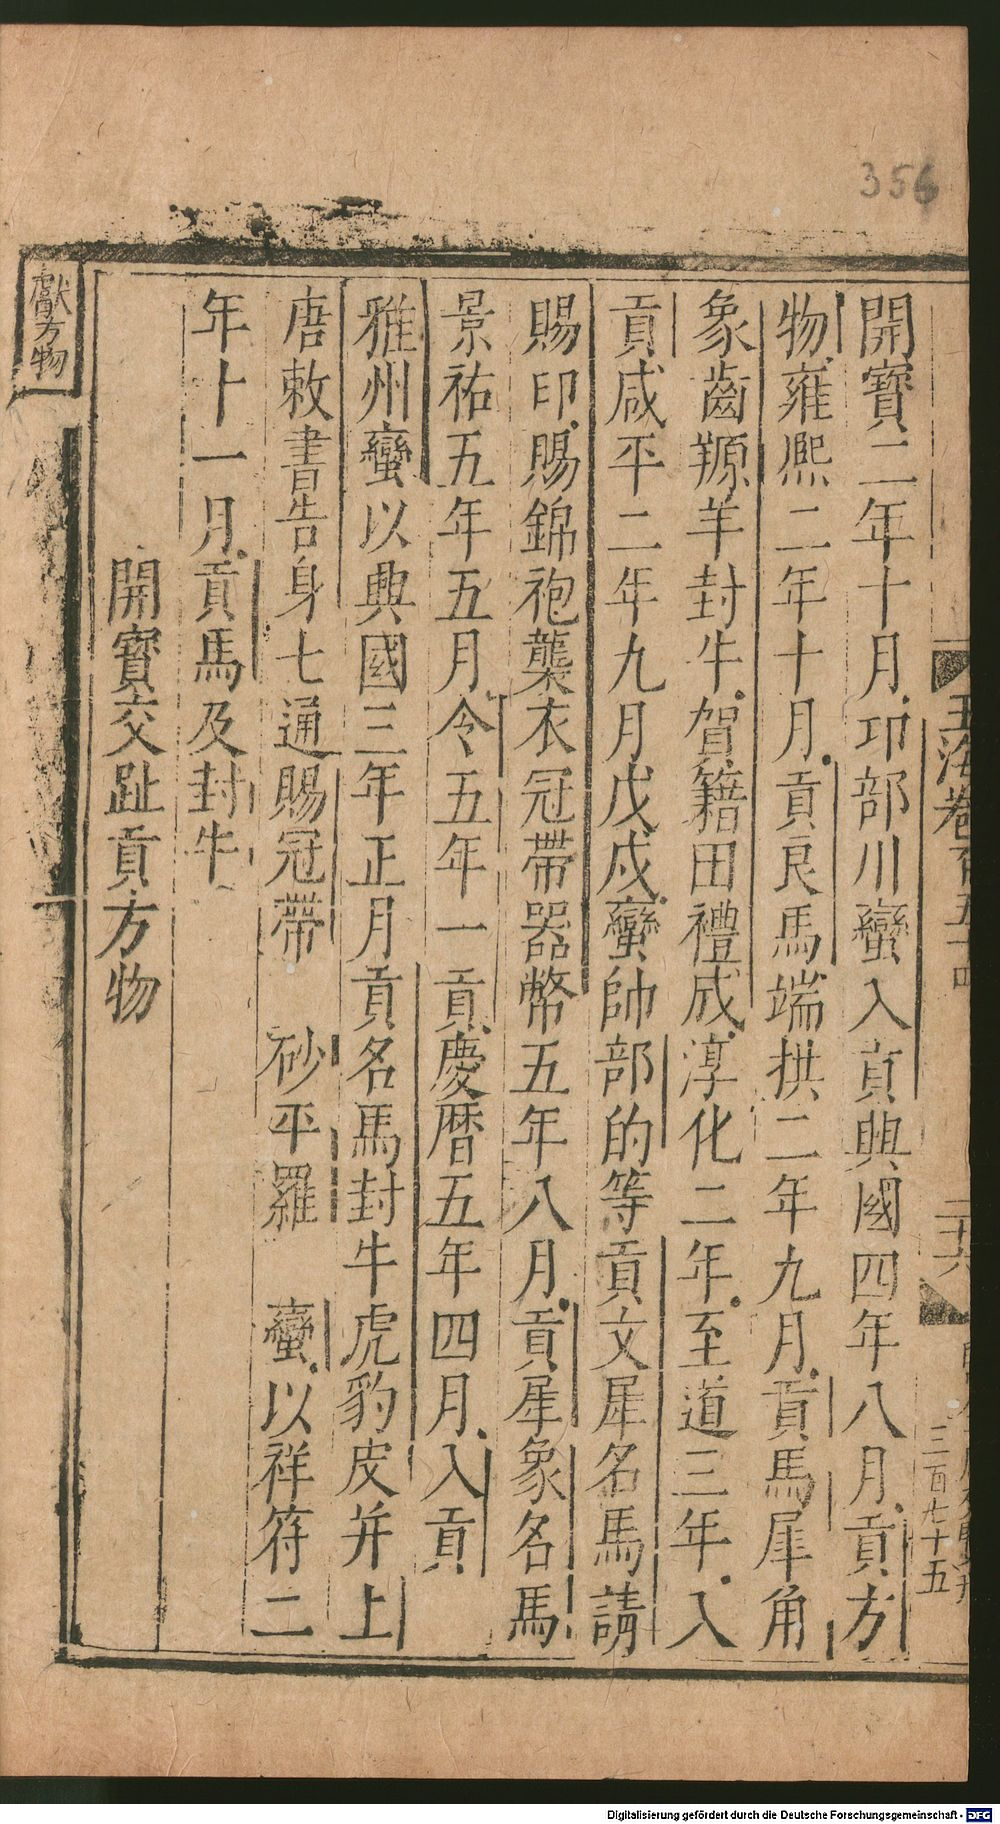 356
玉海卷百五十四
二十六
三百七十五
開寶二年十月卭部川蠻入貢興國四年八月貢方
物雍熙二年十月貢良馬端拱二年九月貢馬犀角
象齒羱羊封牛賀籍田禮成淳化二年至道三年入
貢咸平二年九月戊戌蠻帥部的等貢文犀名馬請
賜印賜錦袍襲衣冠帶器幣五年八月貢犀象名馬
景祐五年五月令五年一貢慶曆五年四月入貢
雅州蠻以興國三年正月貢名馬封牛虎豹皮并上
唐敕書告身七通賜冠帶 砂平羅 蠻以祥符二
年十一月貢馬及封牛
開寶交趾貢方物
獻方物
Digitalisierung gefördert durch die Deutsche Forschungsgemeinschaft - DFG